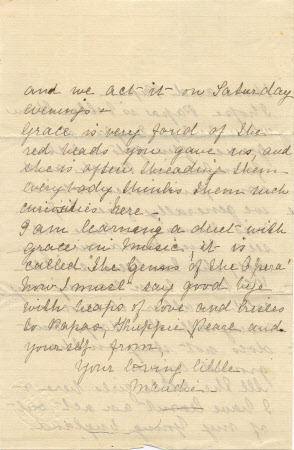 and we act it on Saturday
evenings.
Grace is very fond of the
red beads you gave us, and
she is often threading them
everybody thinks them such
curiosities here -
I am learning a duet with
Grace in Music, it is
called "The Gems of the Opera"
now I must say good bye
with heaps of love and kisses
to Papas, Puppie, and
yourself from
Your loving little